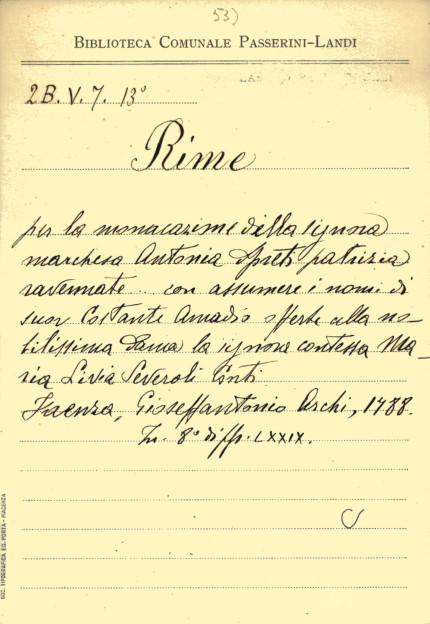 53)
BIBLIOTECA COMUNALE PASSERINI-LANDI
2 B. V. 7. 13°
Rime
per la monacazione della signora
marchesa Antonia Spreti patrizia
ravennate.. con assumere i nomi di
suor Costante Amadio offerte alla no-
bilissima dama la signora contessa Ma-
ria Livia Severoli Conti
Faenza, Gioseffantonio Archi, 1788.
In 8° di pp. LXXIX.
SOC. TIPOGRAFICA ED. PORTA - PIACENZA